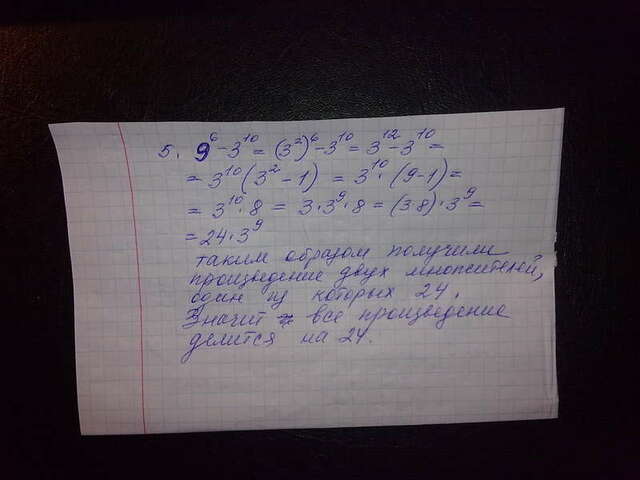 5. 9⁶ - 3¹⁰ = (3²)⁶ - 3¹⁰ = 3¹² - 3¹⁰ =
= 3¹⁰(3² - 1) = 3¹⁰ · (9 - 1) =
= 3¹⁰ · 8 = 3 · 3⁹ · 8 = (3·8) · 3⁹ =
= 24 · 3⁹
таким образом получили
произведение двух множителей,
один из которых 24.
Значит все произведение
делится на 24.